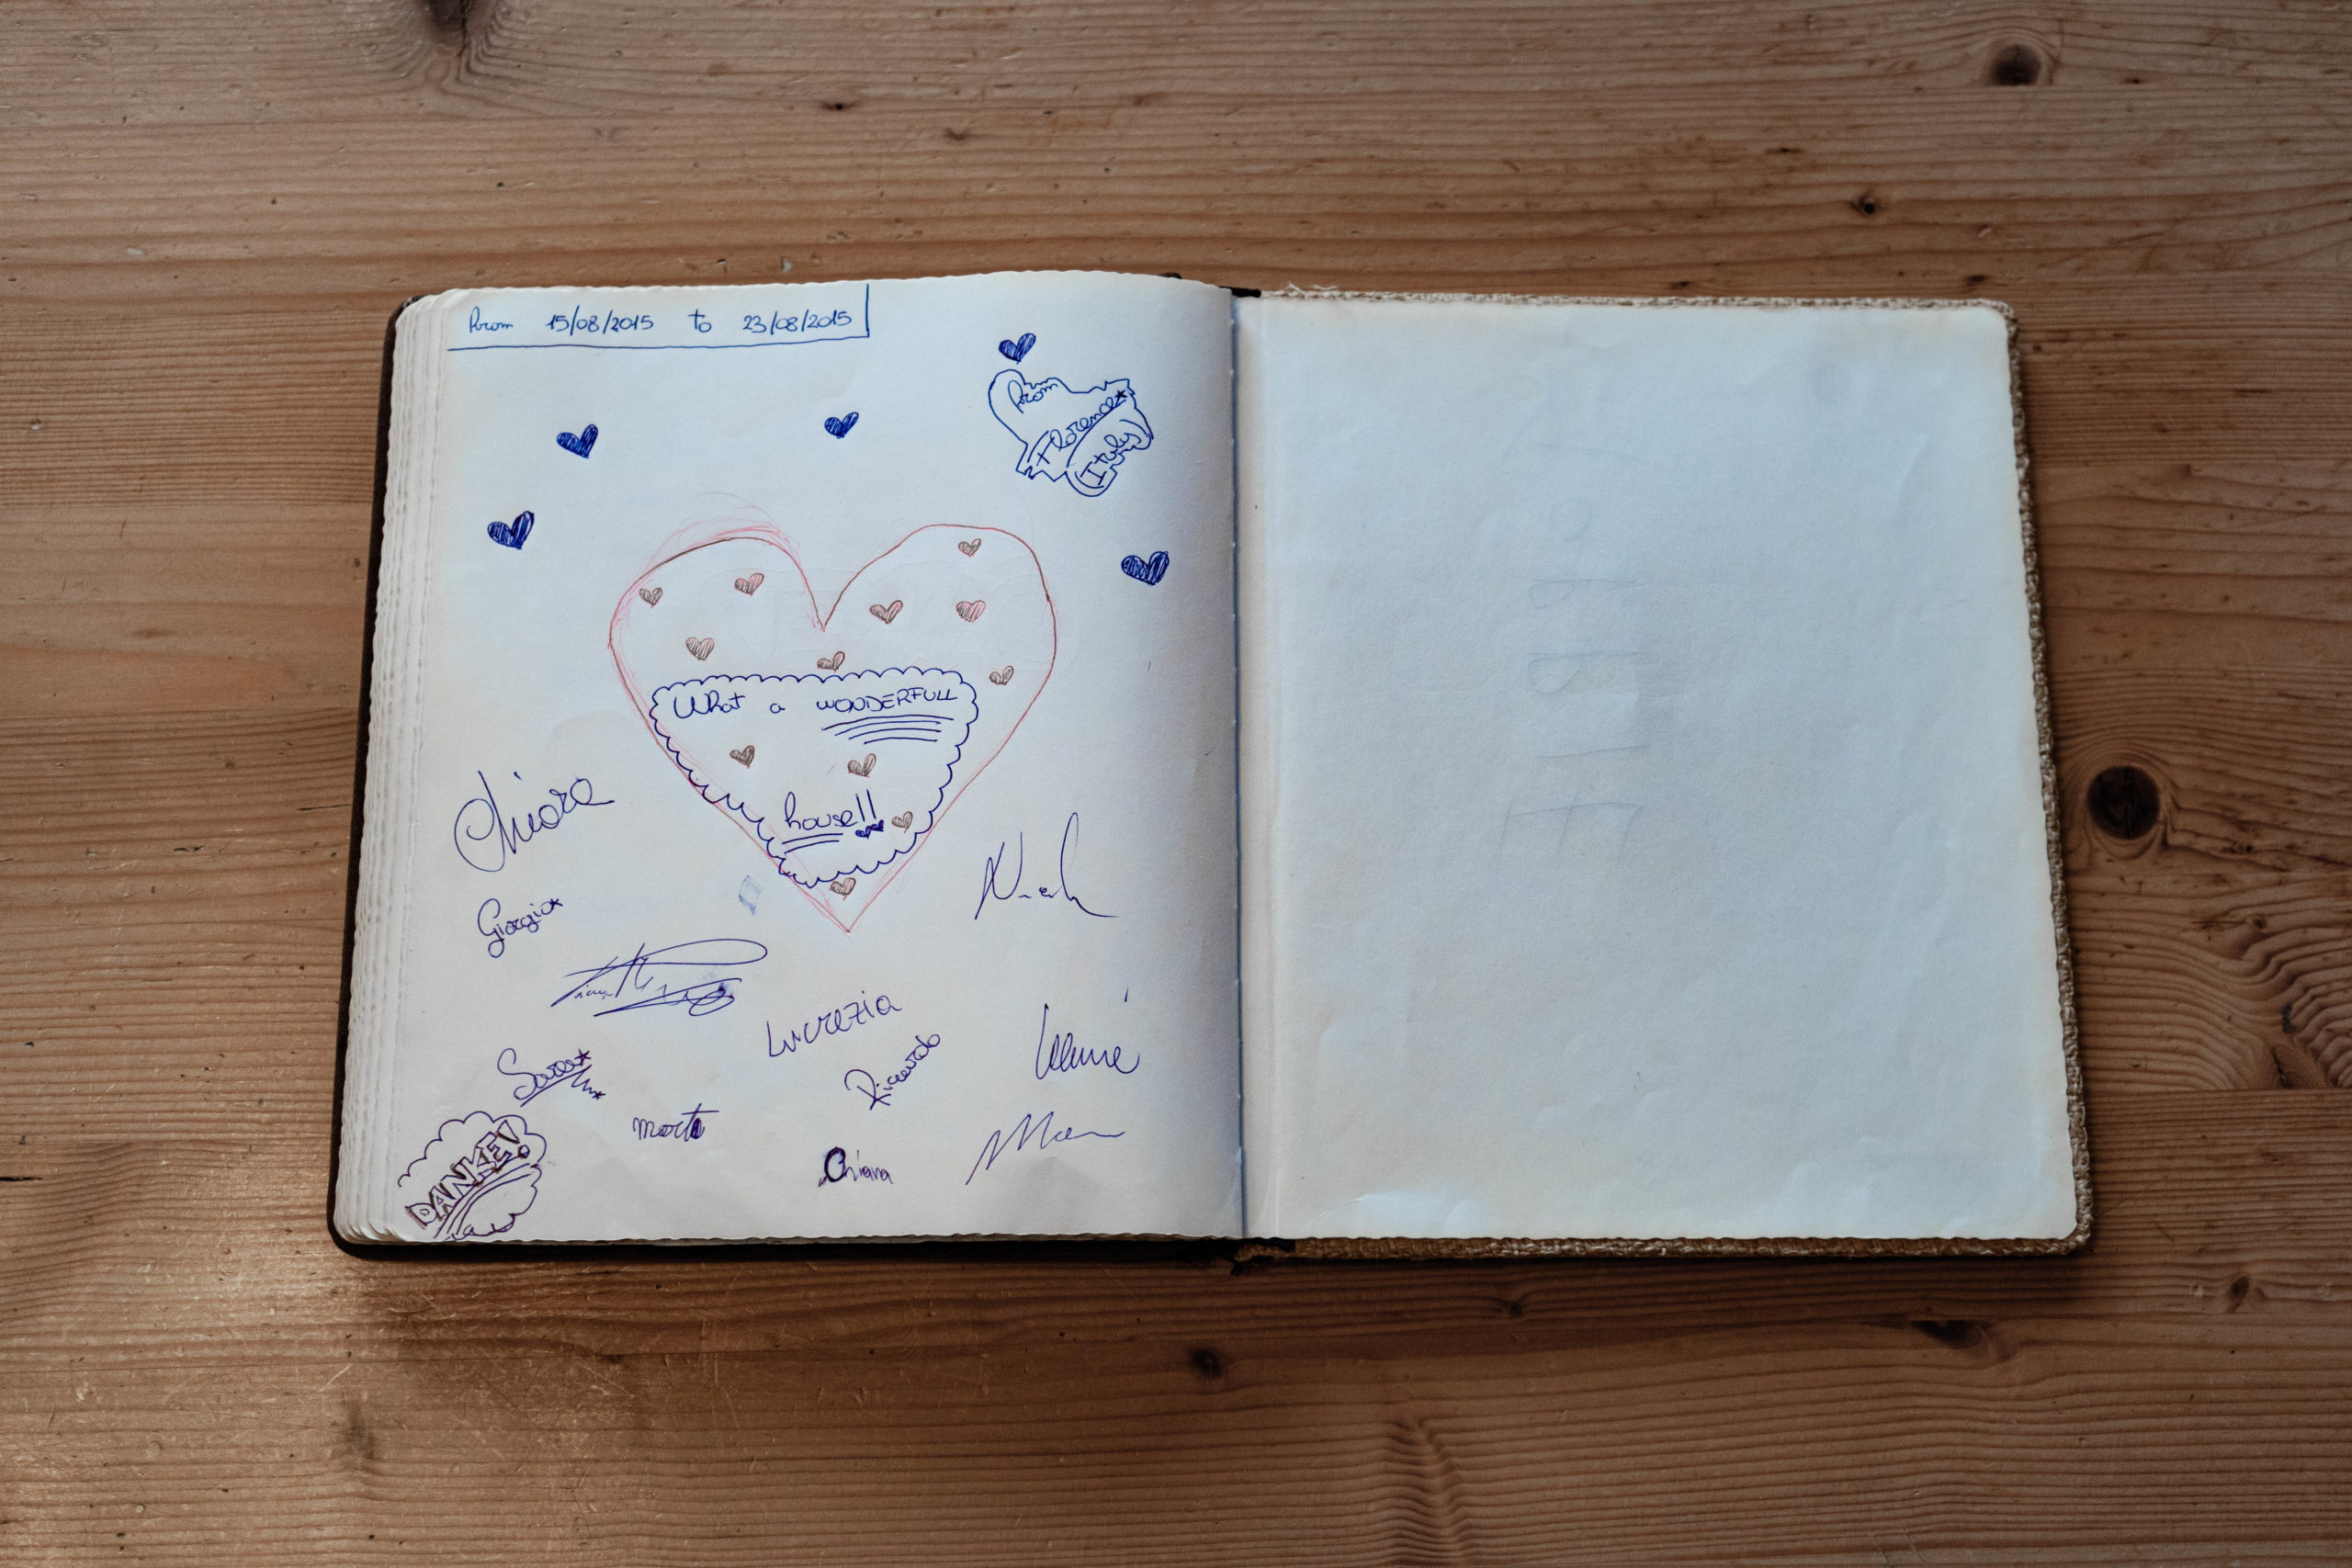 From 15/08/2015 to 23/08/2015
From
Florence
Italy
What a WONDERFULL
house!!
Chiara
Giorgio
Lucrezia
Riccardo
Sara
Marta
Chiara
DANKE!